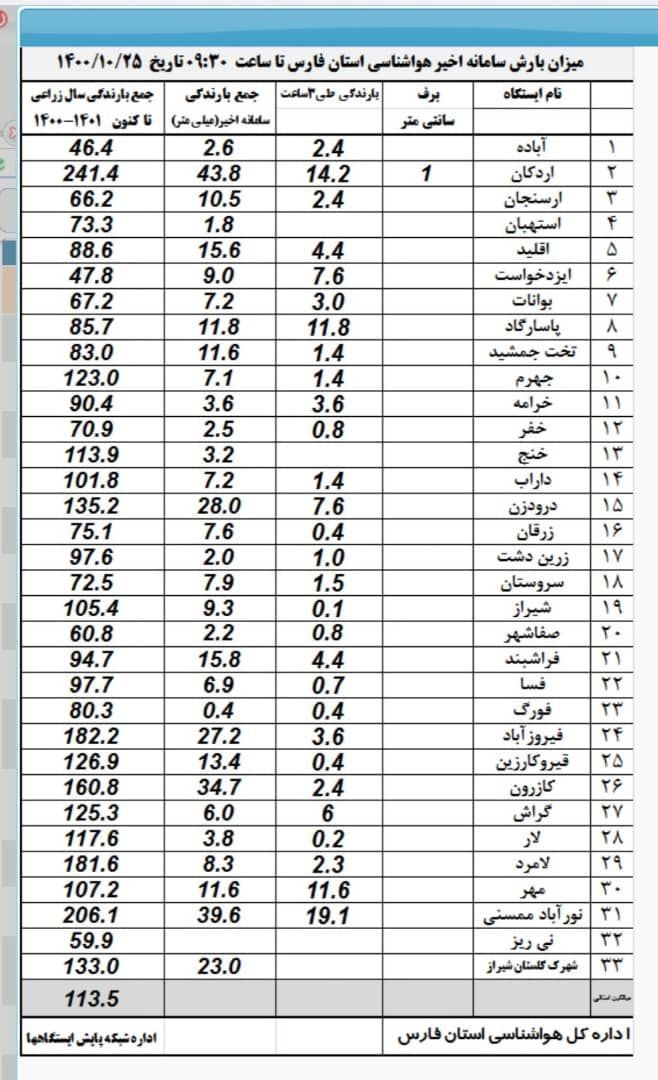 میزان بارش سامانه اخیر هواشناسی استان فارس تا ساعت ۰۹:۳۰ تاریخ ۱۴۰۰/۱۰/۲۵
نام ایستگاه برف بارندگی طی۳ساعت جمع بارندگی جمع بارندگی سال زراعی
سانتی متر سامانه اخیر(میلی متر) تا کنون ۱۴۰۱-۱۴۰۰
۱ آباده 2.4 2.6 46.4
۲ اردکان 1 14.2 43.8 241.4
۳ ارسنجان 2.4 10.5 66.2
۴ استهبان 1.8 73.3
۵ اقلید 4.4 15.6 88.6
۶ ایزدخواست 7.6 9.0 47.8
۷ بوانات 3.0 7.2 67.2
۸ پاسارگاد 11.8 11.8 85.7
۹ تخت جمشید 1.4 11.6 83.0
۱۰ جهرم 1.4 7.1 123.0
۱۱ خرامه 3.6 3.6 90.4
۱۲ خفر 0.8 2.5 70.9
۱۳ خنج 3.2 113.9
۱۴ داراب 1.4 7.2 101.8
۱۵ درودزن 7.6 28.0 135.2
۱۶ زرقان 0.4 7.6 75.1
۱۷ زرین دشت 1.0 2.0 97.6
۱۸ سروستان 1.5 7.9 72.5
۱۹ شیراز 0.1 9.3 105.4
۲۰ صفاشهر 0.8 2.2 60.8
۲۱ فراشبند 4.4 15.8 94.7
۲۲ فسا 0.7 6.9 97.7
۲۳ فورگ 0.4 0.4 80.3
۲۴ فیروزآباد 3.6 27.2 182.2
۲۵ قیروکارزین 0.4 13.4 126.9
۲۶ کازرون 2.4 34.7 160.8
۲۷ گراش 6 6.0 125.3
۲۸ لار 0.2 3.8 117.6
۲۹ لامرد 2.3 8.3 181.6
۳۰ مهر 11.6 11.6 107.2
۳۱ نورآباد ممسنی 19.1 39.6 206.1
۳۲ نی ریز 59.9
۳۳ شهرک گلستان شیراز 23.0 133.0
میانگین استانی 113.5
اداره کل هواشناسی استان فارس اداره شبکه پایش ایستگاهها